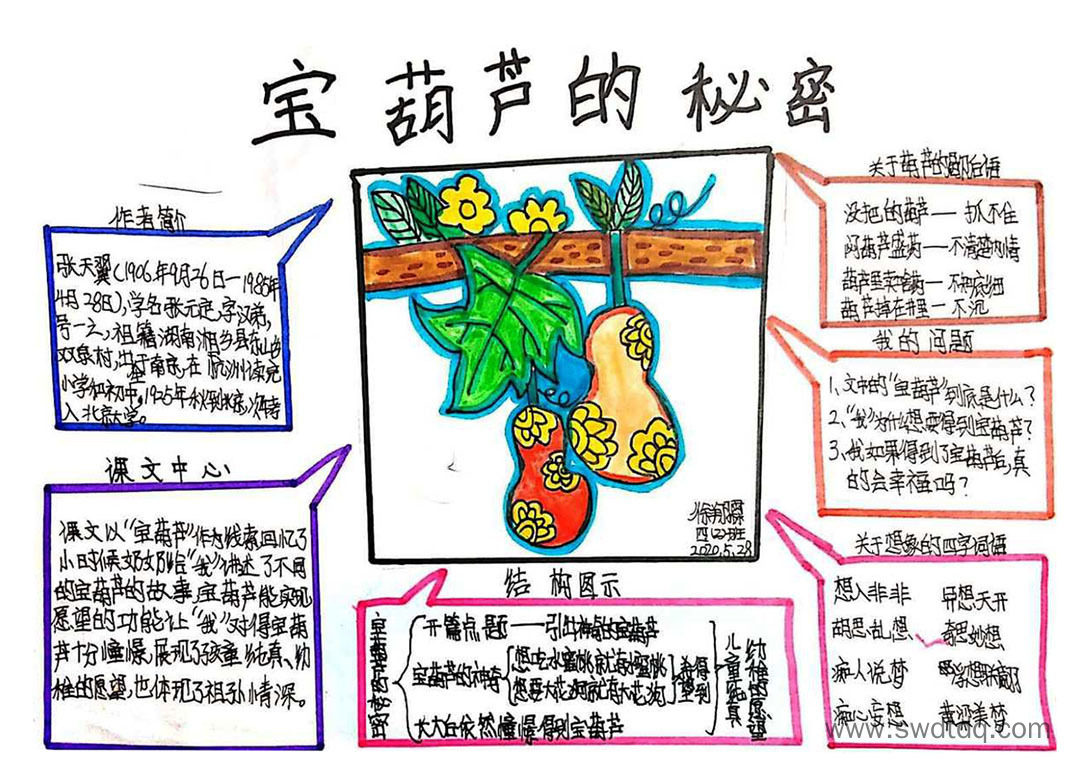 宝葫芦的秘密
作者简介
张天翼(1906年9月26日—1985年
4月28日),学名张元定,字汉弟,
号一之,祖籍湖南湘乡县东山乡
双泉村,出于南京,在杭州读完
小学和初中,1925年秋到北京,次年
入北京大学。
课文中心
课文以“宝葫芦”作为线索回忆了
小时候奶奶给“我”讲述了不同
的宝葫芦的故事,宝葫芦能实现
愿望的功能让“我”对得宝葫
芦十分憧憬,展现了孩童纯真、幼
稚的愿望,也体现了祖孙情深。
徐
四(2)班
2020.5.28
结构图示
宝葫芦的秘密
开篇点题——引出神奇的宝葫芦
宝葫芦的神奇
想吃水蜜桃就有水蜜桃
想要大花狗就有大花狗
希望
得到
长大后依然憧憬得到宝葫芦
儿童纯真
幼稚的愿望
关于葫芦的歇后语
没把的葫芦——抓不住
闷葫芦盛药——不清楚内情
葫芦里卖啥药——不知底细
葫芦掉在井里——不沉
我的问题
1、文中的“宝葫芦”到底是什么?
2、“我”为什么想要得到宝葫芦?
3、我如果得到了宝葫芦后,真
的会幸福吗?
关于想象的四字词语
想入非非 异想天开
胡思乱想 奇思妙想
痴人说梦 浮想联翩
痴心妄想 黄粱美梦
www.swdtdq.com